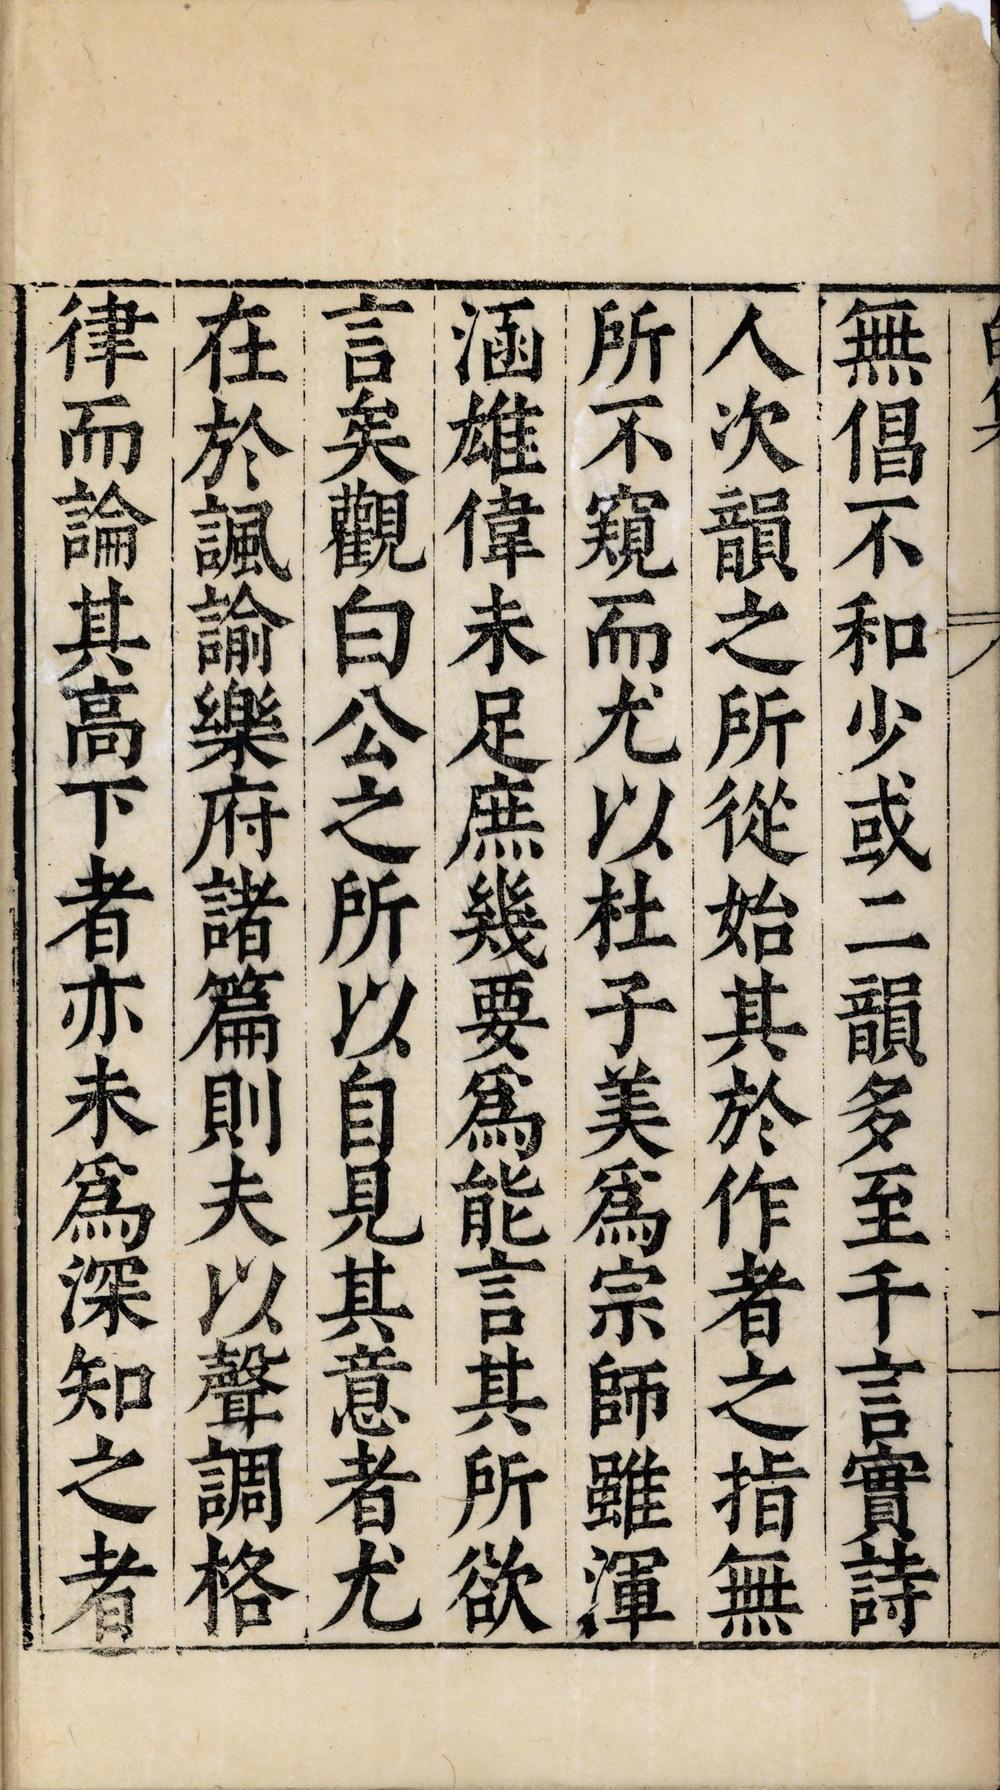 無倡不和少或二韻多至千言實詩
人次韻之所從始其於作者之指無
所不窺而尤以杜子美爲宗師雖渾
涵雄偉未足庶幾要爲能言其所欲
言矣觀白公之所以自見其意者尤
在於諷諭樂府諸篇則夫以聲調格
律而論其高下者亦未爲深知之者